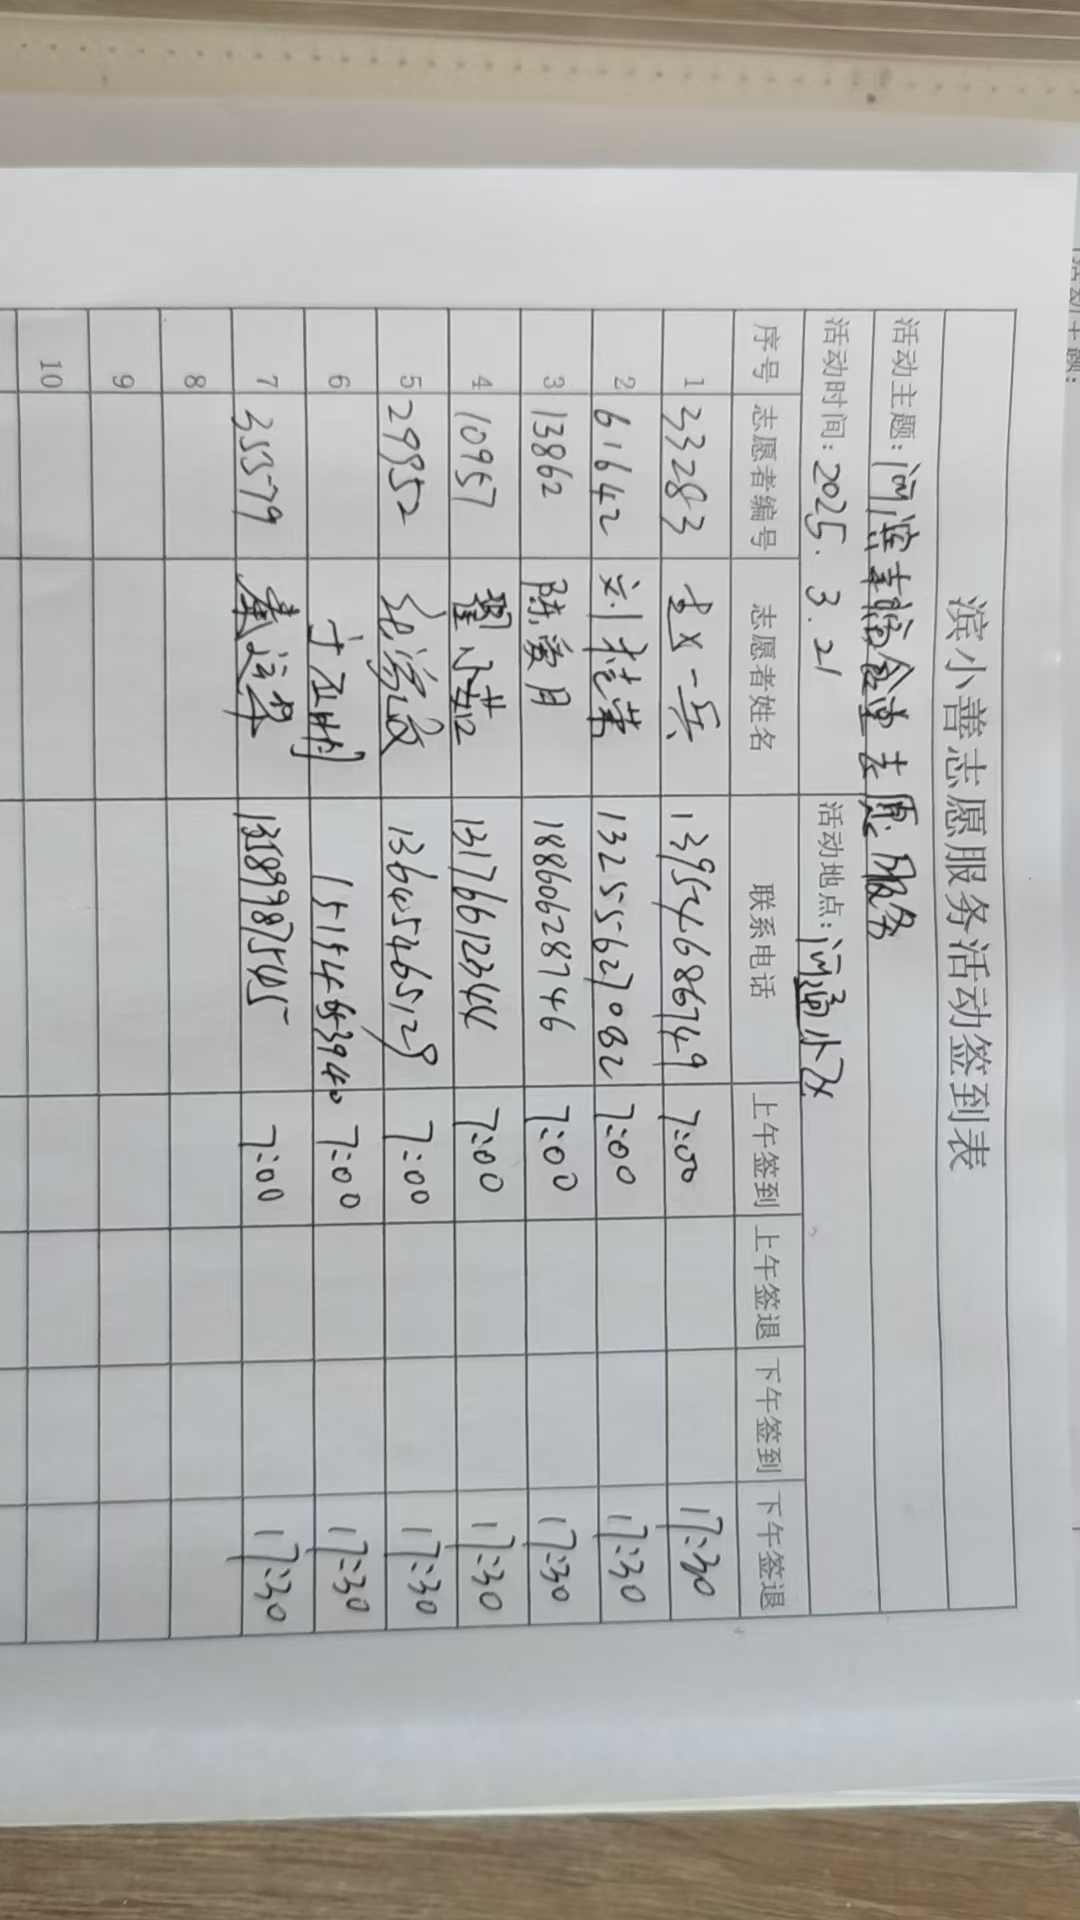 滨小善志愿服务活动签到表
活动主题:河滨幸福食堂志愿服务
活动时间:2025.3.21 活动地点:河滨小区
序号 志愿者编号 志愿者姓名 联系电话 上午签到 上午签退 下午签到 下午签退
1 33283 一兵 13954686749 7:00 17:30
2 61642 刘桂荣 13255627082 7:00 17:30
3 13862 陈爱月 18860628746 7:00 17:30
4 10957 翟小茹 13176612344 7:00 17:30
5 29952 13645465129 7:00 17:30
6 7:00 17:30
7 35579 秦 7:00 17:30
8
9
10